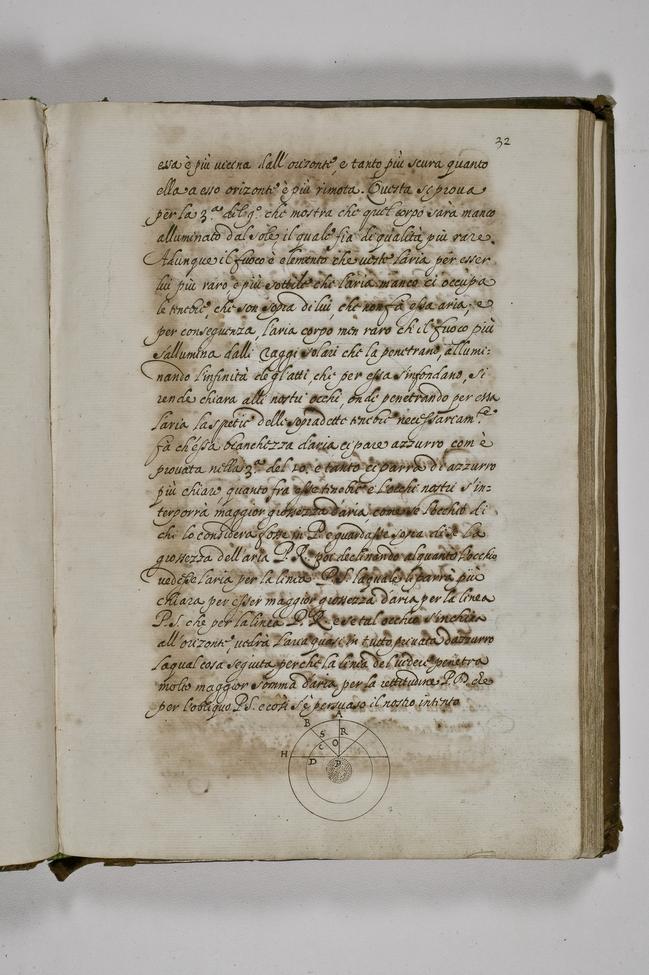 32
essa è più vicina dall'orizonte, e tanto più scura quanto
ella a esso orizonte è più rimota. Questa si prova
per la 3.ª del q.º che mostra che quel corpo sarà manco
alluminato dal sole il quale fia di qualità più rare.
Adunque il fuoco è elemento che veste l'aria per esser
lui più raro e più sottile che l'aria manco ci occupa
le tenebre, che son sopra di lui, che non fa essa aria, e
per conseguenza, l'aria corpo men raro ch'il fuoco più
s'allumina dalli raggi solari che la penetrano, allumi-
nando l'infinità de gl'atti, che per essa s'infondano, si
rende chiara alli nostri occhi, onde penetrando per essa
l'aria la spetie delle sopradette tenebre necessariam.te
fa ch'essa bianchezza d'aria ci pare azzurro com'è
provata nella 3.ª del 10. e tanto ci parrà di azzurro
più chiaro, quanto fra esse tenebre e l'occhi nostri s'in-
terporrà maggior grossezza d'aria, come se l'occhio di
chi lo considera fosse in P. e guardasse sopra di se la
grossezza dell'aria P.R. poi declinando alquanto l'occhio
vedesse l'aria per la linea P.S. la quale li parrà più
chiara per esser maggior grossezza d'aria per la linea
P.S. che per la linea P.R. e se tal occhio s'inchina
all'orizonte, vedrà l'aria quasi in tutto privata d'azzurro
la qual cosa seguita perchè la linea del vedere penetra
molto maggior somma d'aria per la rettitudine P.D. che
per l'obliquo P.S. e così s'è persuaso il nostro intento
A
B
S
R
C
O
H
D
P